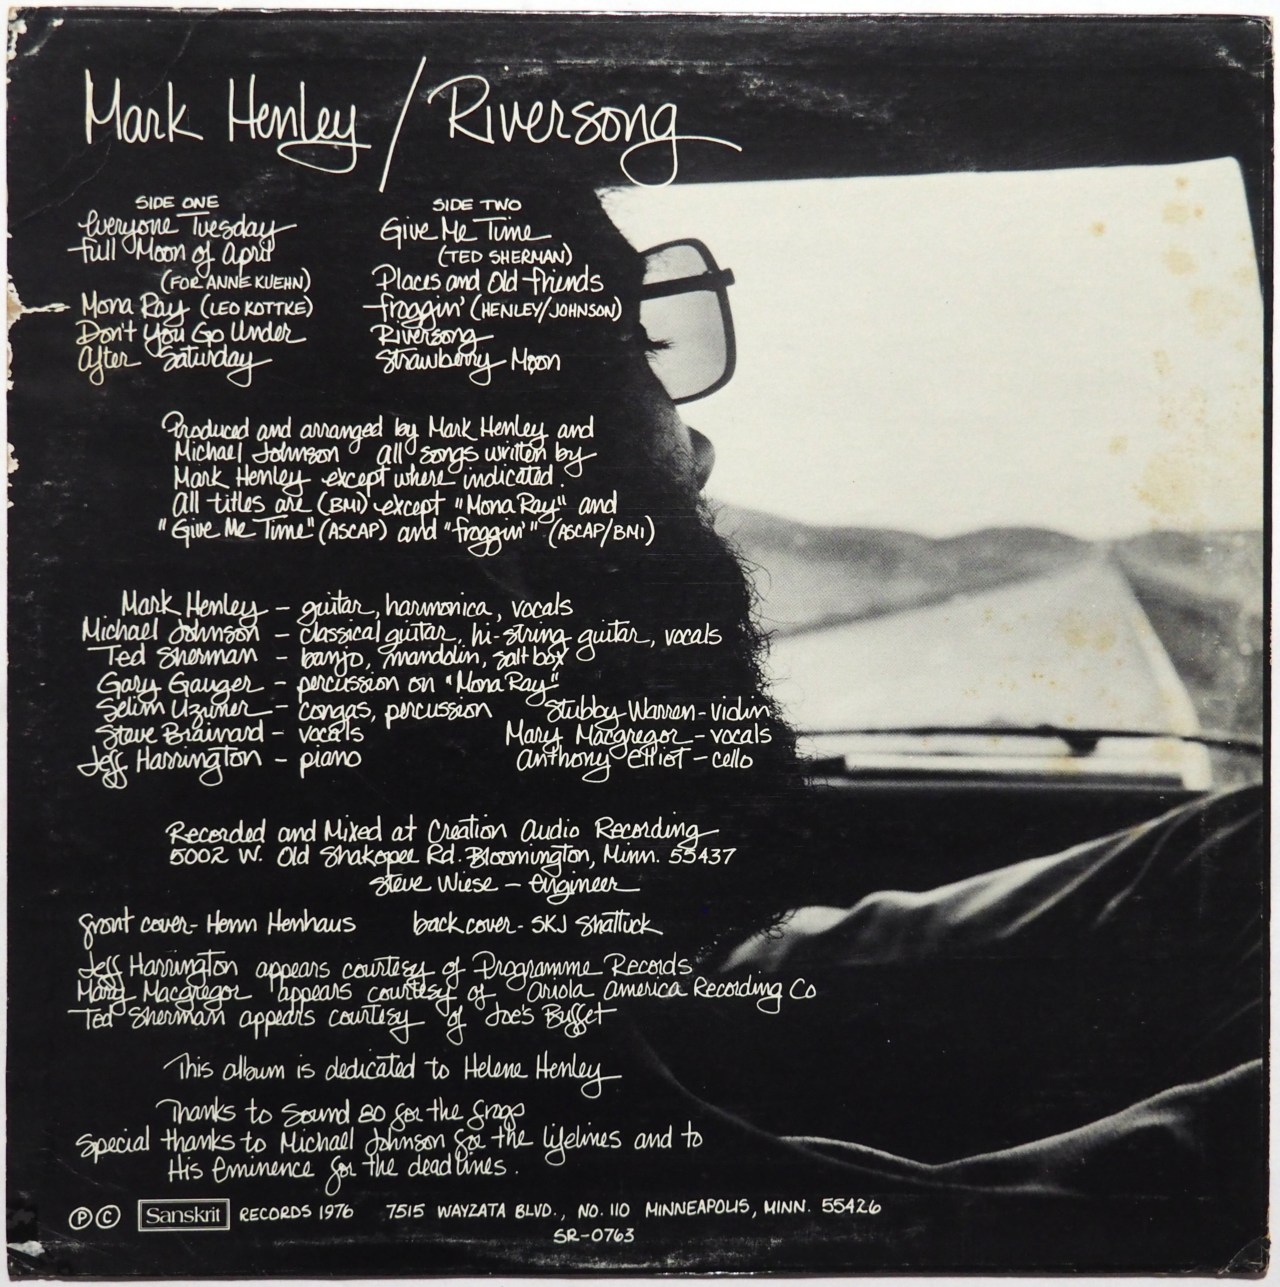 Mark Henley / Riversong
SIDE ONE
Everyone Tuesday
Full Moon of April
(FOR ANNE KUEHN)
Mona Ray (LEO KOTTKE)
Don't You Go Under
After Saturday
SIDE TWO
Give Me Time
(TED SHERMAN)
Places and Old Friends
Froggin' (HENLEY/JOHNSON)
Riversong
Strawberry Moon
Produced and arranged by Mark Henley and
Michael Johnson All songs written by
Mark Henley except where indicated.
All titles are (BMI) except "Mona Ray" and
"Give Me Time" (ASCAP) and "Froggin'" (ASCAP/BMI)
Mark Henley - guitar, harmonica, vocals
Michael Johnson - classical guitar, hi-string guitar, vocals
Ted Sherman - banjo, mandolin, salt box
Gary Gauger - percussion on "Mona Ray"
Selim Uzuner - congas, percussion
Steve Brainard - vocals
Jeff Harrington - piano
Stubby Warren - violin
Mary Macgregor - vocals
Anthony Elliot - cello
Recorded and Mixed at Creation Audio Recording
5002 W. Old Shakopee Rd. Bloomington, Minn. 55437
Steve Wiese - engineer
front cover - Henn Henhaus back cover - SKJ Shattuck
Jeff Harrington appears courtesy of Programme Records
Mary Macgregor appears courtesy of Ariola America Recording Co
Ted Sherman appears courtesy of Joe's Buffet
This album is dedicated to Helene Henley
Thanks to Sound 80 for the frogs
Special thanks to Michael Johnson for the lifelines and to
His Eminence for the deadlines.
Ⓟ © Sanskrit RECORDS 1976 7515 WAYZATA BLVD., NO. 110 MINNEAPOLIS, MINN. 55426
SR-0763